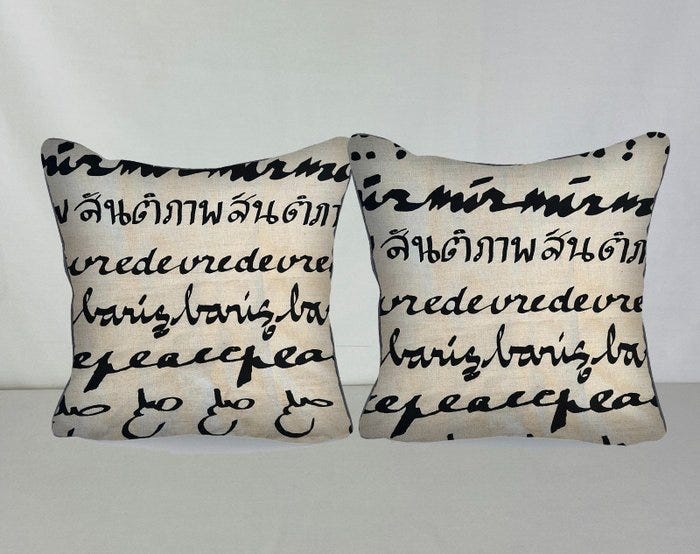 mírmírmír
สันติภาพสันติภา
vredevredevre
barışbarışba
epeacepea
mírmírmír
สันติภาพสันติภ
vredevredevre
barışbarışba
cepeacepea